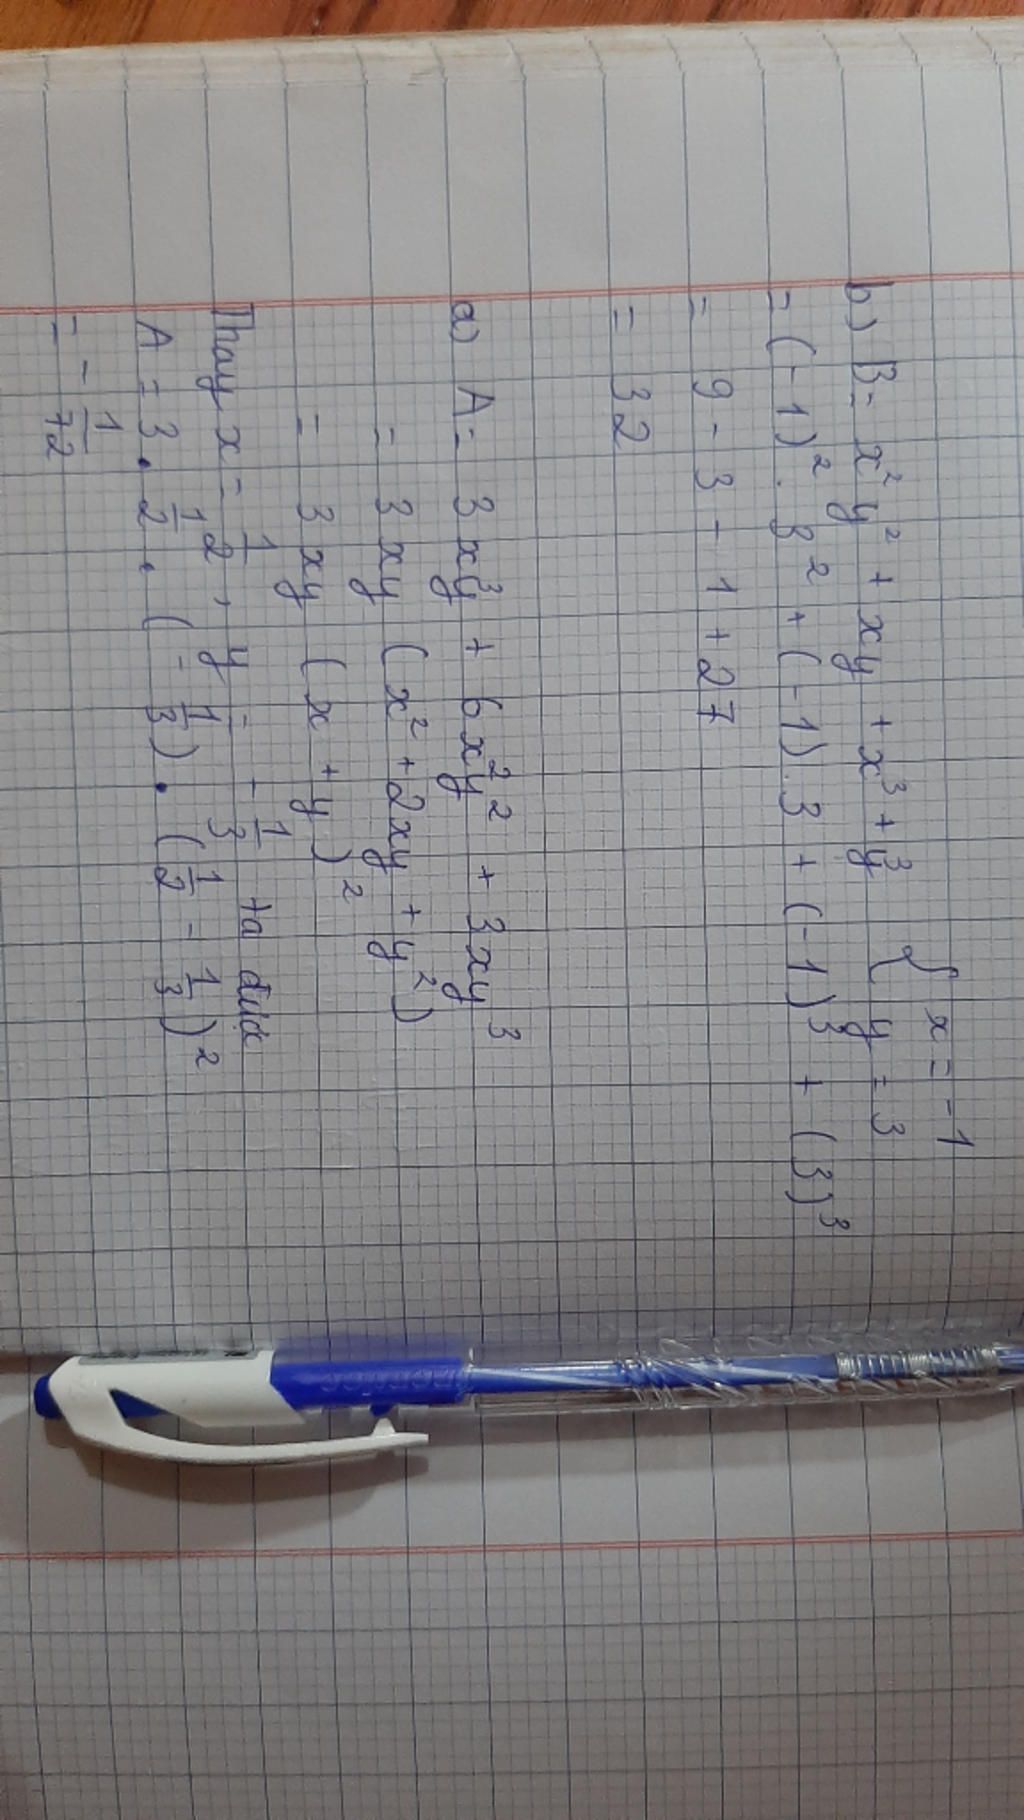 b) B = x²y² + xy + x³ + y³ { x = -1
y = 3
= (-1)². 3² + (-1).3 + (-1)³ + (3)³
= 9 - 3 - 1 + 27
= 32
a) A = 3x³y + 6x²y² + 3xy³
= 3xy (x² + 2xy + y²)
= 3xy (x + y)²
Thay x = 1/2, y = -1/3 ta được
A = 3 . 1/2 . (-1/3) . (1/2 - 1/3)²
= -1/72